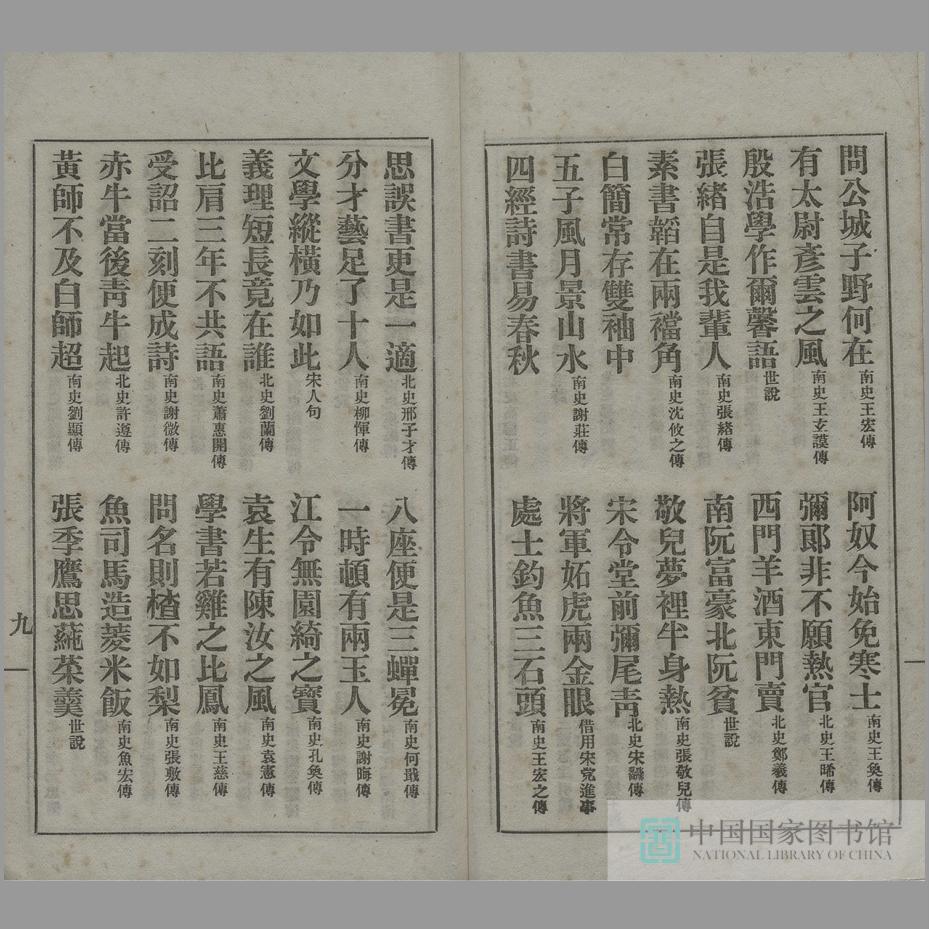 問公城子野何在南史王宏傳
阿奴今始免寒士南史王奐傳
有太尉彥雲之風南史王玄謨傳
彌郞非不願熱官北史王晞傳
殷浩學作爾馨語世說
西門羊酒東門賣北史鄭羲傳
張緒自是我輩人南史張緒傳
南阮富豪北阮貧世說
素書韜在兩襠角南史沈攸之傳
敬兒夢裡半身熱南史張敬兒傳
白簡常存雙袖中
宋令堂前彌尾靑北史宋繇傳
五子風月景山水南史謝莊傳
將軍妬虎兩金眼借用宋党進事
四經詩書易春秋
處士釣魚三石頭南史王宏之傳
思誤書更是一適北史邢子才傳
八座便是三蟬冕南史何戢傳
分才藝足了十人南史柳惲傳
一時頓有兩玉人南史謝晦傳
文學縱橫乃如此宋人句
江令無園綺之寶南史孔奐傳
義理短長竟在誰北史劉蘭傳
袁生有陳汝之風南史袁憲傳
比肩三年不共語南史蕭惠開傳
學書若雞之比鳳南史王慈傳
受詔二刻便成詩南史謝微傳
問名則樝不如梨南史張敷傳
赤牛當後靑牛起北史許遵傳
魚司馬造菱米飯南史魚宏傳
黃師不及白師超南史劉顯傳
張季鷹思蒓菜羹世說
九
中国国家图书馆
NATIONAL LIBRARY OF CHINA